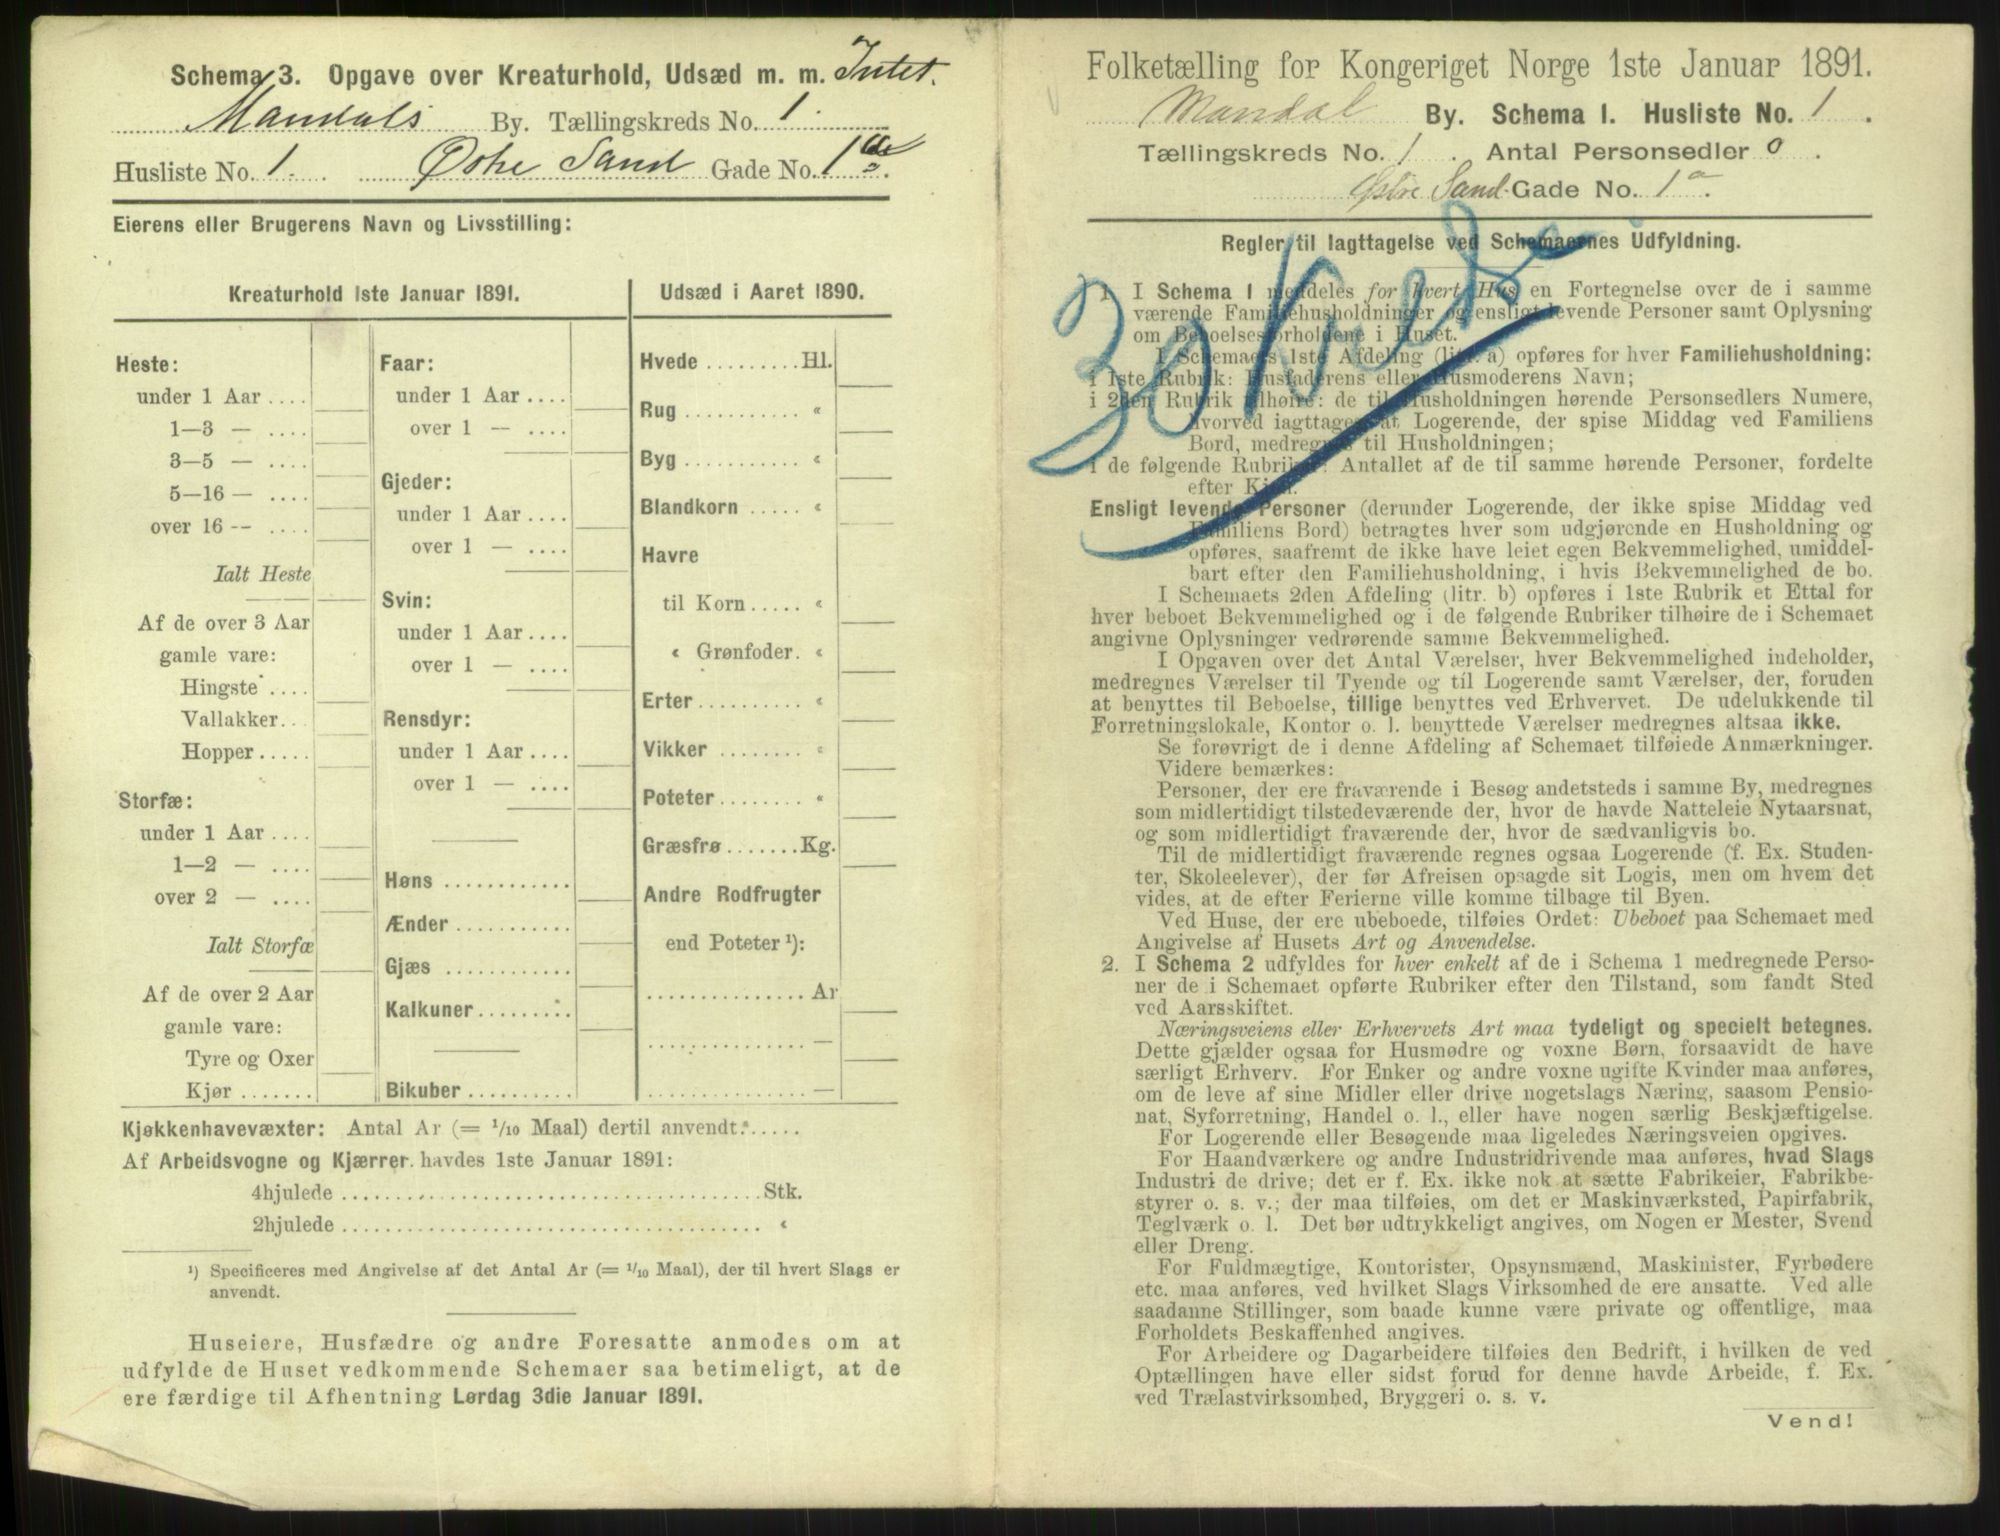 Schema 3. Opgave over Kreaturhold, Udsæd m. m. Intet.
Mandals By. Tællingskreds No. 1.
Husliste No. 1. Østre Sand Gade No. 1
Eierens eller Brugerens Navn og Livsstilling:
Kreaturhold 1ste Januar 1891.
Heste:
under 1 Aar ....
1—3 — ....
3—5 — ....
5—16 — ....
over 16 -- ....
Ialt Heste
Af de over 3 Aar
gamle vare:
Hingste ....
Vallakker...
Hopper .....
Storfæ:
under 1 Aar ....
1—2 — ....
over 2 — ....
Ialt Storfæ
Af de over 2 Aar
gamle vare:
Tyre og Oxer
Kjør .......
Faar:
under 1 Aar ....
over 1 — ....
Gjeder:
under 1 Aar ....
over 1 — ....
Svin:
under 1 Aar ....
over 1 — ....
Rensdyr:
under 1 Aar ....
over 1 — ....
Høns ............
Ænder ...........
Gjæs ............
Kalkuner.........
Bikuber ..........
Udsæd i Aaret 1890.
Hvede .........Hl.
Rug ........... «
Byg ........... «
Blandkorn ..... «
Havre
til Korn ..... «
« Grønfoder. «
Erter .......... «
Vikker ........ «
Poteter ........ «
Græsfrø .......Kg.
Andre Rodfrugter
end Poteter ¹):
............... Ar
............... —
............... —
Kjøkkenhavevæxter: Antal Ar (= 1/10 Maal) dertil anvendt:.....
Af Arbeidsvogne og Kjærrer havdes 1ste Januar 1891:
4hjulede ........................................Stk.
2hjulede ........................................ «
¹) Specificeres med Angivelse af det Antal Ar (= 1/10 Maal), der til hvert Slags er
anvendt.
Huseiere, Husfædre og andre Foresatte anmodes om at
udfylde de Huset vedkommende Schemaer saa betimeligt, at de
ere færdige til Afhentning Lørdag 3die Januar 1891.
Folketælling for Kongeriget Norge 1ste Januar 1891.
Mandal By. Schema I. Husliste No. 1.
Tællingskreds No. 1. Antal Personsedler 0.
Østre Sand Gade No. 1a.
Regler til Iagttagelse ved Schemaernes Udfyldning.
1. I Schema 1 meddeles for hvert Hus en Fortegnelse over de i samme
værende Familiehusholdninger og ensligt levende Personer samt Oplysning
om Beboelsesforholdene i Huset.
I Schemaets 1ste Afdeling (litr. a) opføres for hver Familiehusholdning:
i 1ste Rubrik: Husfaderens eller Husmoderens Navn;
i 2den Rubrik tilhøire: de til Husholdningen hørende Personsedlers Numere,
hvorved iagttages, at Logerende, der spise Middag ved Familiens
Bord, medregnes til Husholdningen;
i de følgende Rubriker: Antallet af de til samme hørende Personer, fordelte
efter Kjøn.
Ensligt levende Personer (derunder Logerende, der ikke spise Middag ved
Familiens Bord) betragtes hver som udgjørende en Husholdning og
opføres, saafremt de ikke have leiet egen Bekvemmelighed, umiddel-
bart efter den Familiehusholdning, i hvis Bekvemmelighed de bo.
I Schemaets 2den Afdeling (litr. b) opføres i 1ste Rubrik et Ettal for
hver beboet Bekvemmelighed og i de følgende Rubriker tilhøire de i Schemaet
angivne Oplysninger vedrørende samme Bekvemmelighed.
I Opgaven over det Antal Værelser, hver Bekvemmelighed indeholder,
medregnes Værelser til Tyende og til Logerende samt Værelser, der, foruden
at benyttes til Beboelse, tillige benyttes ved Erhvervet. De udelukkende til
Forretningslokale, Kontor o. l. benyttede Værelser medregnes altsaa ikke.
Se forøvrigt de i denne Afdeling af Schemaet tilføiede Anmærkninger.
Videre bemærkes:
Personer, der ere fraværende i Besøg andetsteds i samme By, medregnes
som midlertidigt tilstedeværende der, hvor de havde Natteleie Nytaarsnat,
og som midlertidigt fraværende der, hvor de sædvanligvis bo.
Til de midlertidigt fraværende regnes ogsaa Logerende (f. Ex. Studen-
ter, Skoleelever), der før Afreisen opsagde sit Logis, men om hvem det
vides, at de efter Ferierne ville komme tilbage til Byen.
Ved Huse, der ere ubeboede, tilføies Ordet: Ubeboet paa Schemaet med
Angivelse af Husets Art og Anvendelse.
2. I Schema 2 udfyldes for hver enkelt af de i Schema 1 medregnede Perso-
ner de i Schemaet opførte Rubriker efter den Tilstand, som fandt Sted
ved Aarsskiftet.
Næringsveiens eller Erhvervets Art maa tydeligt og specielt betegnes.
Dette gjælder ogsaa for Husmødre og voxne Børn, forsaavidt de have
særligt Erhverv. For Enker og andre voxne ugifte Kvinder maa anføres,
om de leve af sine Midler eller drive nogetslags Næring, saasom Pensio-
nat, Syforretning, Handel o. l., eller have nogen særlig Beskjæftigelse.
For Logerende eller Besøgende maa ligeledes Næringsveien opgives.
For Haandværkere og andre Industridrivende maa anføres, hvad Slags
Industri de drive; det er f. Ex. ikke nok at sætte Fabrikeier, Fabrikbe-
styrer o. s. v.; der maa tilføies, om det er Maskinværksted, Papirfabrik,
Teglværk o. l. Det bør udtrykkeligt angives, om Nogen er Mester, Svend
eller Dreng.
For Fuldmægtige, Kontorister, Opsynsmænd, Maskinister, Fyrbødere
etc. maa anføres, ved hvilket Slags Virksomhed de ere ansatte. Ved alle
saadanne Stillinger, som baade kunne være private og offentlige, maa
Forholdets Beskaffenhed angives.
For Arbeidere og Dagarbeidere tilføies den Bedrift, i hvilken de ved
Optællingen have eller sidst forud for denne havde Arbeide, f. Ex.
ved Trælastvirksomhed, Bryggeri o. s. v.
Vend!